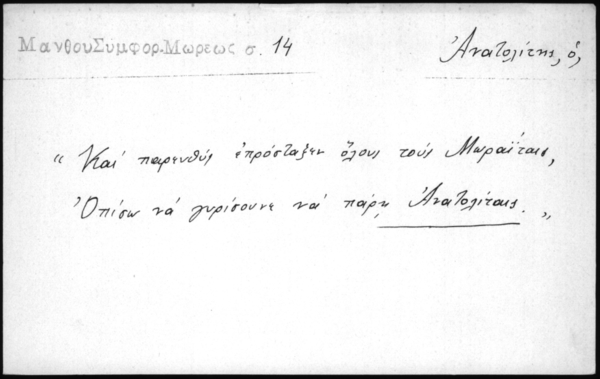 Μανθου Συμφορ. Μωρεως σ. 14
Ἀνατολίτης, ὁ,
“ Καί παρευθύς ἐπρόσταξεν ὅλους τούς Μωραΐταις,
Ὀπίσω νά γυρίσουνε νά πάρῃ Ἀνατολίταις. „